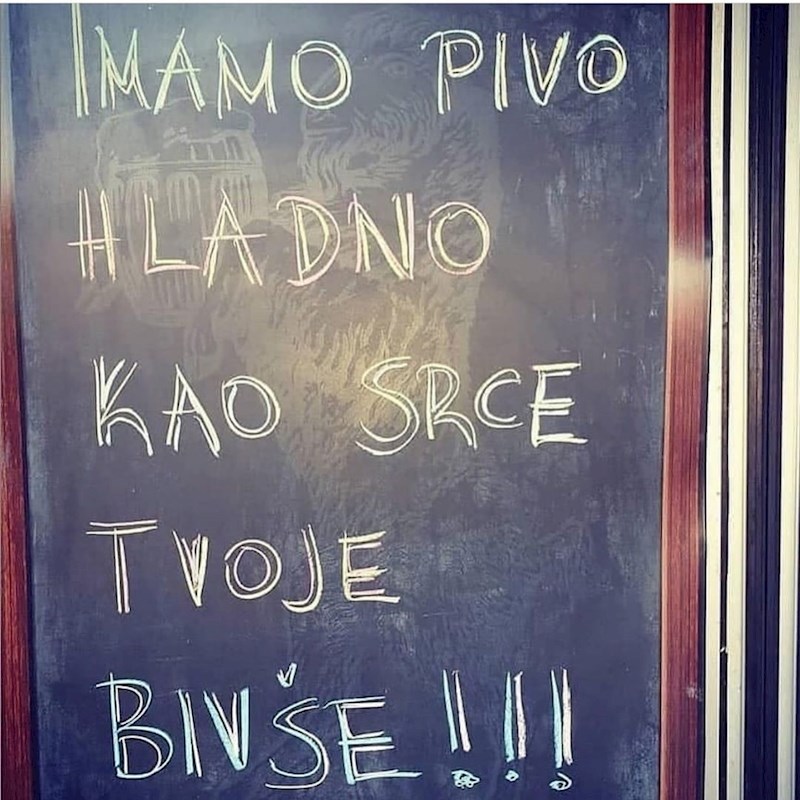 IMAMO PIVO
HLADNO
KAO SRCE
TVOJE
BIVŠE!!!